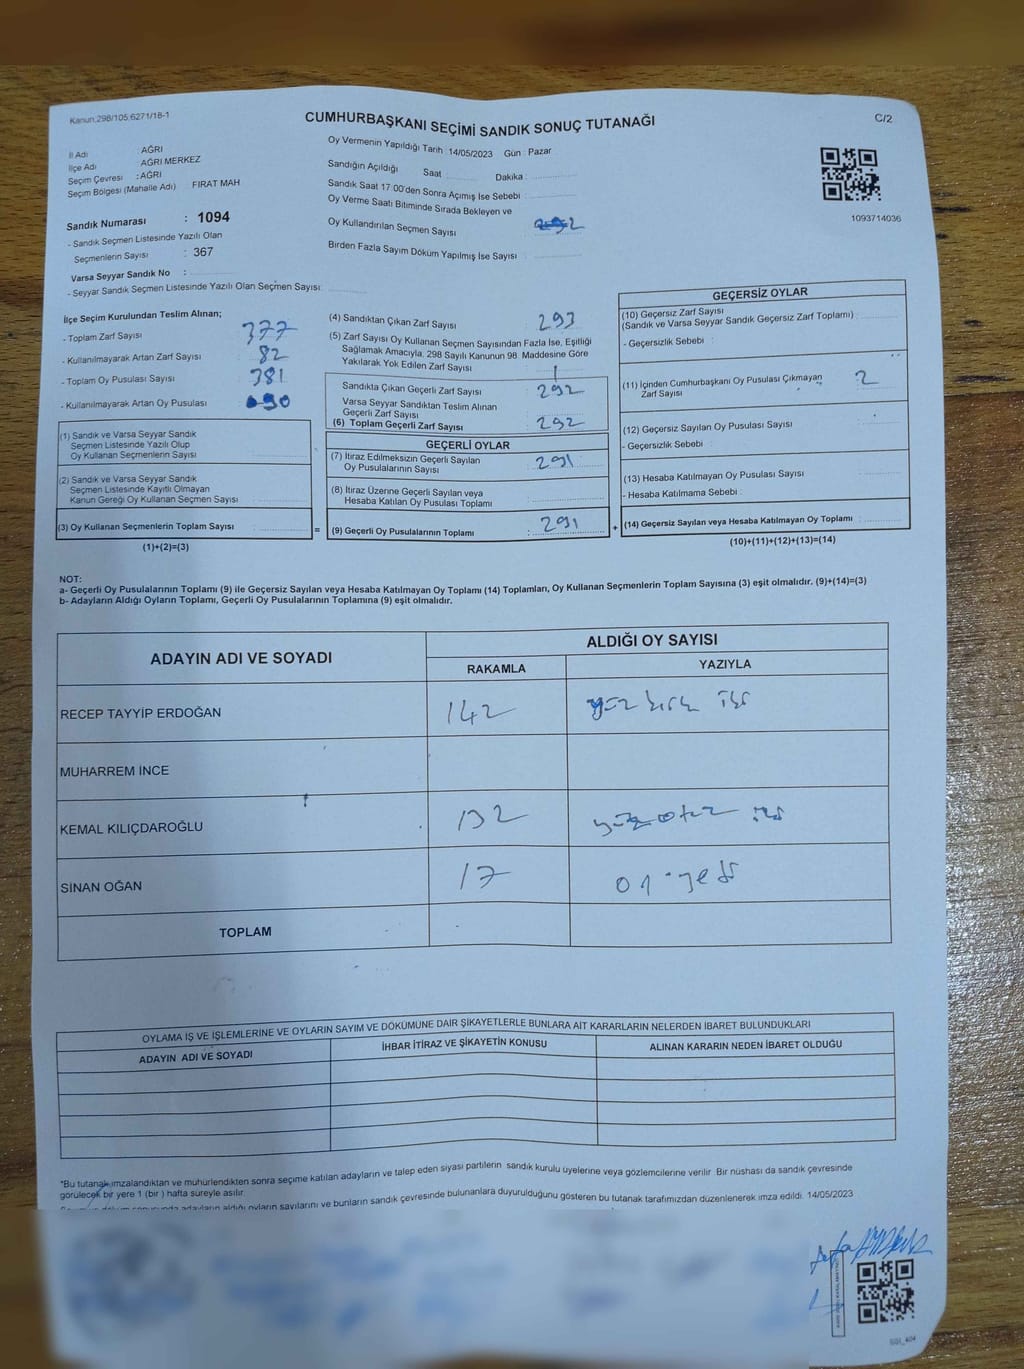 Kanun.298/105;6271/18-1
C/2
CUMHURBAŞKANI SEÇİMİ SANDIK SONUÇ TUTANAĞI
İl Adı : AĞRI
İlçe Adı : AĞRI MERKEZ
Seçim Çevresi : AĞRI
Seçim Bölgesi (Mahalle Adı) FIRAT MAH
Sandık Numarası : 1094
- Sandık Seçmen Listesinde Yazılı Olan
Seçmenlerin Sayısı : 367
Varsa Seyyar Sandık No :
- Seyyar Sandık Seçmen Listesinde Yazılı Olan Seçmen Sayısı:
Oy Vermenin Yapıldığı Tarih 14/05/2023 Gün : Pazar
Sandığın Açıldığı Saat Dakika :
Sandık Saat 17:00'den Sonra Açımış İse Sebebi :
Oy Verme Saati Bitiminde Sırada Bekleyen ve
Oy Kullandırılan Seçmen Sayısı
Birden Fazla Sayım Döküm Yapılmış İse Sayısı :
1093714036
İlçe Seçim Kurulundan Teslim Alınan;
- Toplam Zarf Sayısı 377
- Kullanılmayarak Artan Zarf Sayısı 82
- Toplam Oy Pusulası Sayısı 381
- Kullanılmayarak Artan Oy Pusulası 90
(1) Sandık ve Varsa Seyyar Sandık
Seçmen Listesinde Yazılı Olup
Oy Kullanan Seçmenlerin Sayısı :
(2) Sandık ve Varsa Seyyar Sandık
Seçmen Listesinde Kayıtlı Olmayan
Kanun Gereği Oy Kullanan Seçmen Sayısı :
(3) Oy Kullanan Seçmenlerin Toplam Sayısı :
(1)+(2)=(3)
=
(4) Sandıktan Çıkan Zarf Sayısı : 293
(5) Zarf Sayısı Oy Kullanan Seçmen Sayısından Fazla İse, Eşitliği
Sağlamak Amacıyla, 298 Sayılı Kanunun 98. Maddesine Göre
Yakılarak Yok Edilen Zarf Sayısı : 1
Sandıkta Çıkan Geçerli Zarf Sayısı : 292
Varsa Seyyar Sandıktan Teslim Alınan
Geçerli Zarf Sayısı :
(6) Toplam Geçerli Zarf Sayısı : 292
GEÇERLİ OYLAR
(7) İtiraz Edilmeksizin Geçerli Sayılan
Oy Pusulalarının Sayısı : 291
(8) İtiraz Üzerine Geçerli Sayılan veya
Hesaba Katılan Oy Pusulası Toplamı :
(9) Geçerli Oy Pusulalarının Toplamı : 291
+
GEÇERSİZ OYLAR
(10) Geçersiz Zarf Sayısı
(Sandık ve Varsa Seyyar Sandık Geçersiz Zarf Toplamı) :
- Geçersizlik Sebebi :
(11) İçinden Cumhurbaşkanı Oy Pusulası Çıkmayan
Zarf Sayısı : 2
(12) Geçersiz Sayılan Oy Pusulası Sayısı :
- Geçersizlik Sebebi :
(13) Hesaba Katılmayan Oy Pusulası Sayısı :
- Hesaba Katılmama Sebebi :
(14) Geçersiz Sayılan veya Hesaba Katılmayan Oy Toplamı :
(10)+(11)+(12)+(13)=(14)
NOT:
a- Geçerli Oy Pusulalarının Toplamı (9) ile Geçersiz Sayılan veya Hesaba Katılmayan Oy Toplamı (14) Toplamları, Oy Kullanan Seçmenlerin Toplam Sayısına (3) eşit olmalıdır. (9)+(14)=(3)
b- Adayların Aldığı Oyların Toplamı, Geçerli Oy Pusulalarının Toplamına (9) eşit olmalıdır.
ADAYIN ADI VE SOYADI
ALDIĞI OY SAYISI
RAKAMLA YAZIYLA
RECEP TAYYİP ERDOĞAN 142 yüz kırk iki
MUHARREM İNCE
KEMAL KILIÇDAROĞLU 132 yüz otuz iki
SİNAN OĞAN 17 on yedi
TOPLAM
OYLAMA İŞ VE İŞLEMLERİNE VE OYLARIN SAYIM VE DÖKÜMÜNE DAİR ŞİKAYETLERLE BUNLARA AİT KARARLARIN NELERDEN İBARET BULUNDUKLARI
ADAYIN ADI VE SOYADI İHBAR İTİRAZ VE ŞİKAYETİN KONUSU ALINAN KARARIN NEDEN İBARET OLDUĞU
*Bu tutanak imzalandıktan ve mühürlendikten sonra seçime katılan adayların ve talep eden siyasi partilerin sandık kurulu üyelerine veya gözlemcilerine verilir. Bir nüshası da sandık çevresinde
görülecek bir yere 1 (bir ) hafta süreyle asılır.
adayların aldığı oyların sayılarını ve bunların sandık çevresinde bulunanlara duyurulduğunu gösteren bu tutanak tarafımızdan düzenlenerek imza edildi. 14/05/2023